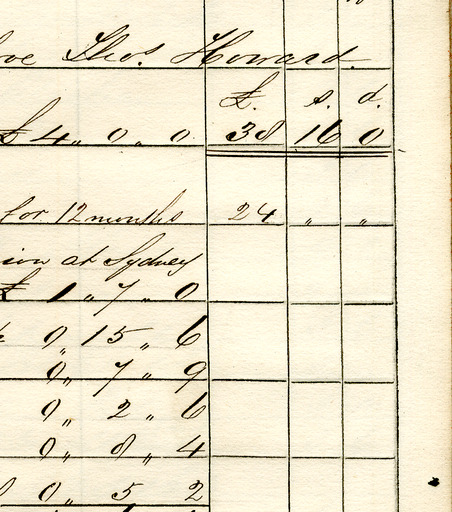 Thos. Howard.
£. s. d.
£ 4 „ 0 „ 0 38 16 0
for 12 months 24 „ „
sion at Sydney
£ 1 „ 7 „ 0
0 „ 15 „ 6
0 „ 7 „ 9
0 „ 2 „ 6
0 „ 8 „ 4
0 „ 5 2